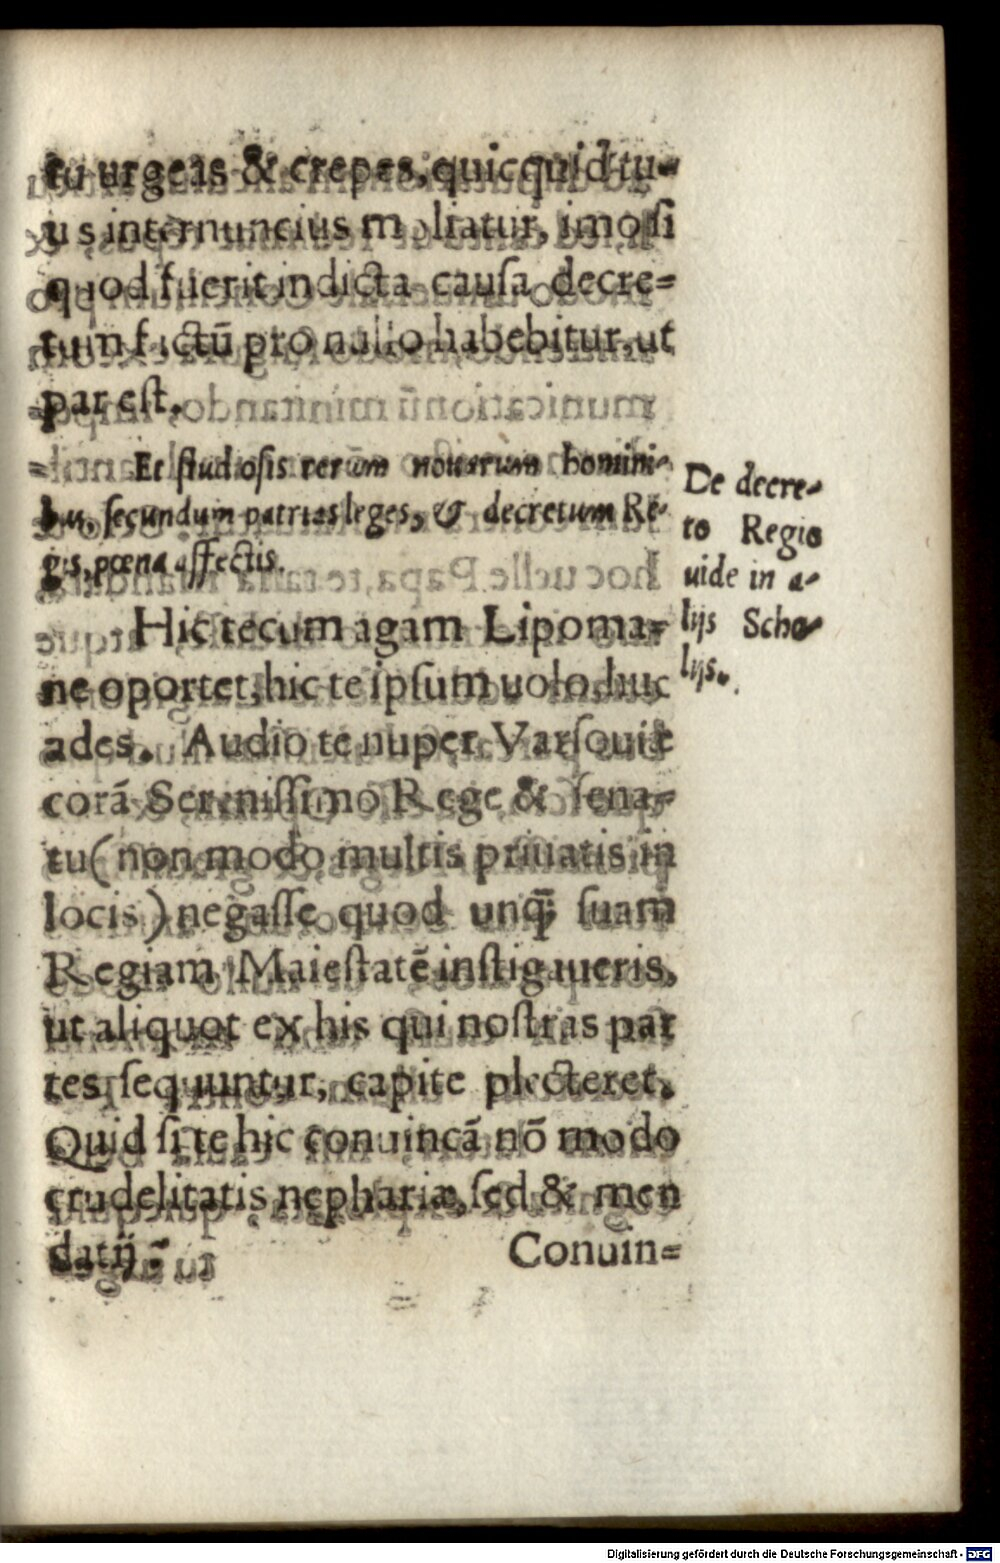 tu urgeas & crepes, quicquid tu-
us internuncius moliatur, imo si
quod fuerit indicta causa decre-
tum fictū pro nullo habebitur, ut
par est.
Et studiosis rerum nouarum homini-
bus, secundum patrias leges, & decretum Re-
gis, pœna affectis.
De decre-
to Regio
uide in a-
lijs Scho-
lijs.
Hic tecum agam Lipoma-
ne oportet, hic te ipsum uolo, huc
ades. Audio te nuper Varsouiæ
corā Serenissimo Rege & sena-
tu (non modo multis priuatis in
locis) negasse quod unq̃; suam
Regiam Maiestatē instigaueris,
ut aliquot ex his qui nostras par
tes sequuntur, capite plecteret.
Quid si te hic conuincā nō modo
crudelitatis nephariæ, sed & men
datij.
Conuin-
Digitalisierung gefördert durch die Deutsche Forschungsgemeinschaft - DFG